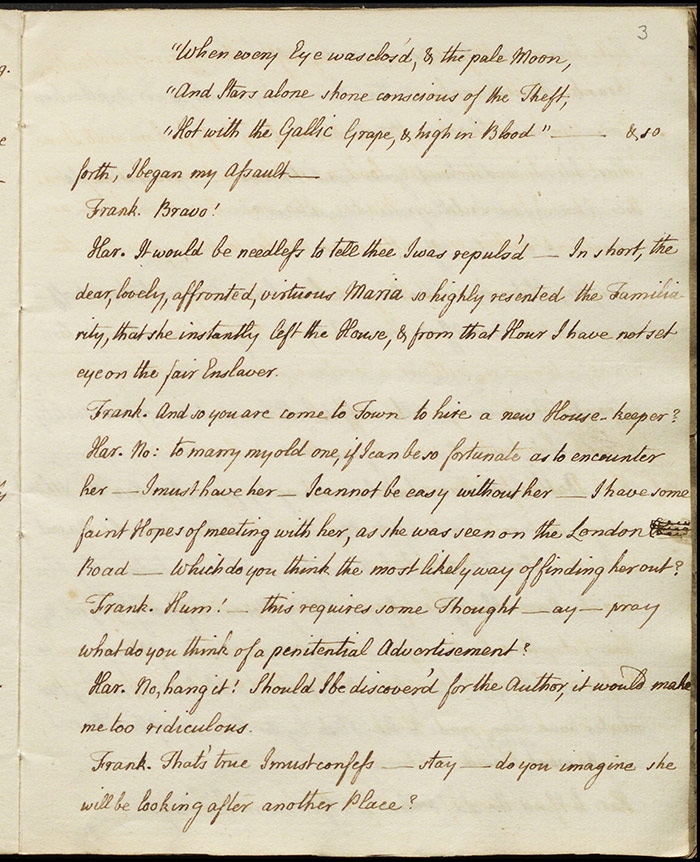 3
"When every Eye was clos'd, & the pale Moon,
"And Stars alone shone conscious of the Theft,
"Hot with the Gallic Grape, & high in Blood" — & so
forth, I began my Aſsault —
Frank. Bravo!
Har. It would be needleſs to tell thee I was repuls'd — In short, the
dear, lovely, affronted, virtuous Maria so highly resented the Familia
rity, that she instantly left the House, & from that Hour I have not set
eye on the fair Enslaver.
Frank. And so you are come to Town to hire a new House-keeper?
Har. No: to marry my old one, if I can be so fortunate as to encounter
her — I must have her — I cannot be easy without her — I have some
faint Hopes of meeting with her, as she was seen on the London
Road — Which do you think the most likely way of finding her out?
Frank. Hum! — this requires some Thought — ay — pray
what do you think of a penitential Advertisement?
Har. No, hang it! Should I be discover'd for the Author, it would make
me too ridiculous.
Frank. That's true I must confeſs — stay — do you imagine she
will be looking after another Place?